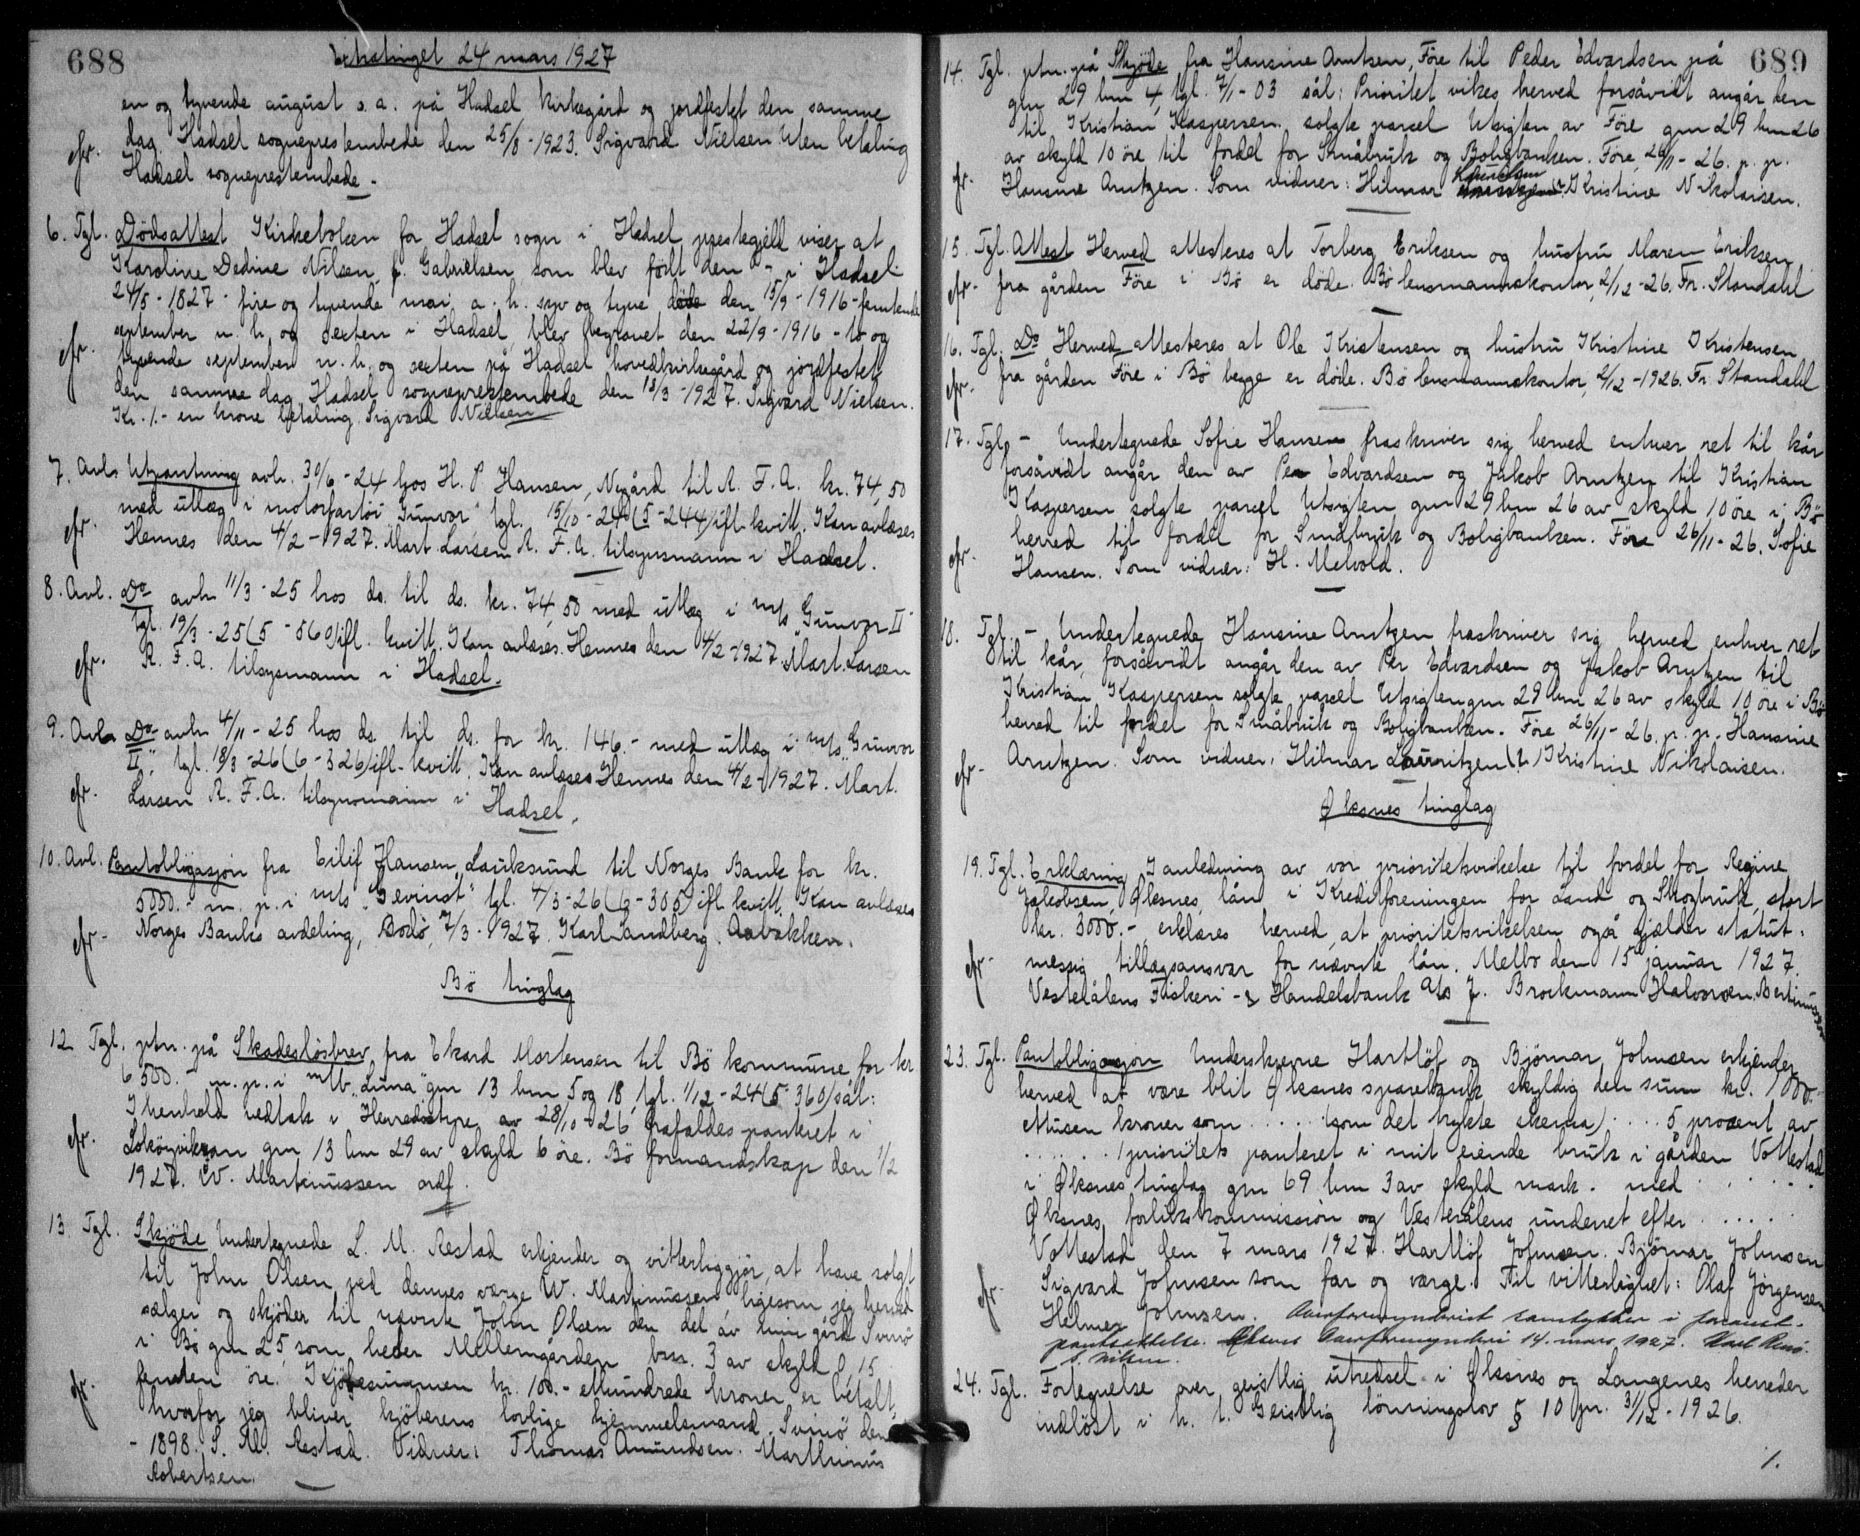 688
Ekstratinget 24 mars 1927
en og tyvende august s. a. på Hadsel kirkegård og jordfestet den samme
dag. Hadsel sogneprestembede den 25/8-1923. Sigvard Nielsen Uten betaling
cfr. Hadsel sogneprestembede.
6. Tgl. Dødsattest Kirkeboken for Hadsel sogn i Hadsel prestegjeld viser at
Karoline Dedine Nilsen, f. Gabrielsen, som blev født den - i Hadsel
24/5-1827 - fire og tyvende mai a. h. syv og tyve døde den 15/9-1916 - femtende
september n. h. og sexten i Hadsel, blev begravet den 22/9-1916 - to og
cfr. tyvende september n. h. og sexten på Hadsel hovedkirkegård og jordfestet
den samme dag. Hadsel sogneprestembede den 18/3-1927. Sigvard Nielsen.
Kr. 1.- en krone betaling Sigvard Nielsen
7. Avl. Utpantning avh. 30/6-24 hos H. P Hansen, Nygård til R. F. A. kr. 74,50
med utlæg i motorfartøi "Gunvor" tgl. 15/10-24 (5-244) ifl. kvitt. Kan avlæses
cfr. Hennes den 4/2-1927. Mart. Larsen R. F. A. tilsynsmann i Hadsel.
8. Avl. Do avh 11/3-25 hos ds. til ds. kr. 74,50 med utlæg i m/s "Gunvor II"
tgl. 19/3-25 (5-560) ifl. kvitt. Kan avlæses. Hennes den 4/2-1927. Mart. Larsen
cfr. R. F. A. tilsynsmann i Hadsel.
9. Avl. Do avh 4/11-25 hos ds. til ds. for kr. 146.- med utlæg i m/s "Gunvor
II", tgl. 18/3-26 (6-326) ifl. kvitt. Kan avlæses Hennes den 4/2-1927. Mart.
cfr. Larsen R. F. A. tilsynsmann i Hadsel.
10. Avl. Pantobligasjon fra Eilif Hansen, Lauksund til Norges Bank for kr.
5000.- m. p. i m/s "Gevinst" tgl. 4/3-26 (6-305) ifl. kvitt. Kan avlæses
cfr. Norges Banks avdeling, Bodø, 7/3-1927. Karl Sandberg. Aabakken.
Bö tinglag
12 Tgl. ptn. på Skadesløsbrev fra Ekard Mortensen til Bö kommune for kr
6500.- m. p. i m/b "Luna" gnr 13 bnr 5 og 18, tgl. 1/12-24 (5-360) sål:
I henhold vedtak i Herredsstyre av 28/10-26 frafaldes panteret i
cfr. gnr 13 bnr 29 av skyld 6 öre. Bö formandskap den 1/2
1927. W. Martinussen ordf.
13. Tgl. Skjöde Undertegnede L. M. Restad erkjender og vitterliggjör, at have solgt
til John Olsen ved dennes værge W. Martinussen, ligesom jeg herved
sælger og skjöder til nævnte John Olsen den del av min gård Svinö
i Bö gnr 25, som heder Mellemgården bnr. 3 av skyld 0,15
cfr. femten öre. Kjöbesummen kr. 100.- etthundrede kroner er betalt,
hvorfor jeg bliver kjöberens lovlige hjemmelsmand. Svinö den
- 1898. L. M. Restad. Vidner: Thomas Amundsen. Marthinus
Robertsen.
689
14. Tgl. ptn. på Skjöde fra Hansine Arntsen, Före til Peder Edvardsen på
gnr 29 bnr 4, tgl. 7/1-03 sål: Prioritet vikes herved forsåvidt angår den
til Kristian Kaspersen solgte parcel Utsigten av Före gnr 29 bnr 26
av skyld 10 öre til fordel for Småbruk og Boligbanken. Före, 26/11-26. p. p.
cfr. Hansine Arntzen. Som vidner: Hilmar Kristine Nikolaisen.
15. Tgl. Attest Herved attesteres at Torberg Eriksen og hustru Maren Eriksen
cfr. fra gården Före i Bö er döde. Bö lensmannskontor, 2/12-26. Fr. Standahl
16. Tgl. Do Herved attesteres at Ole Kristensen og hustru Kristine Kristensen
cfr. fra gården Före i Bö begge er döde. Bö lensmannskontor, 2/12-1926. Fr. Standahl
17. Tgl. - Undertegnede Sofie Hansen fraskriver sig herved enhver ret til kår
forsåvidt angår den av Per Edvardsen og Jakob Arntzen til Kristian
Kaspersen solgte parcel Utsigten gnr 29 bnr 26 av skyld 10 öre i Bö
herred til fordel for Småbruk og Boligbanken. Före 26/11-26. Sofie
cfr. Hansen. Som vidner: H. Melvold.
18. Tgl. - Undertegnede Hansine Arntzen fraskriver sig herved enhver ret
til kår, forsåvidt angår den av Per Edvardsen og Jakob Arntzen til
Kristian Kaspersen solgte parcel Utsigten gnr 29 bnr 26 av skyld 10 öre i Bö
herred til fordel for Småbruk og Boligbanken. Före 26/11-26. p. p. Hansine
cfr. Arntzen. Som vidner: Hilmar Lauritzen (?) Kristine Nikolaisen.
Øksnes tinglag
19. Tgl. Erklæring I anledning av vor prioritetsvikelse til fordel for Regine
Jakobsen, Øksnes, lån i Kreditforeningen for Land og Skogbruk, stort
kr. 3000.-, erklæres herved, at prioritetsvikelsen også gjælder statut-
cfr. messig tillægsansvar for nævnte lån. Melbo den 15 januar 1927.
Vesterålens Fiskeri- & Handelsbank A/s J. Brockmann Halvorsen. Bertinussen
23. Tgl. Pantobligasjon Underskrevne Hartlöf og Bjömar Johnsen erkjender
herved at være blit Øksnes sparebank skyldig den sum kr. 1000.-
ettusen kroner som ..... (som det trykte skema) .... 5 procent av
...... 1 prioritets panteret i mit eiende bruk i gården Vottestad
i Øksnes tinglag gnr 69 bnr 3 av skyld mark. - med ......
Øksnes forlikskommission og Vesterålens underret efter .....
Vottestad den 7 mars 1927. Hartlöf Johnsen. Bjömar Johnsen
cfr. Sigvard Johnsen som far og værge. Til vitterlighet: Olaf Jörgensen
Helmer Johnsen. Overformynderiet samtykker i foranst.
pantsettelse. Øksnes Overformynderi 14. mars 1927. Karl Renö.
S. Nilsen.
24. Tgl. Fortegnelse over geistlig utredsel i Øksnes og Langenes herreder
indløst i h. t. Geistlig lönningslov § 10 pr. 31/12-1926.
1.